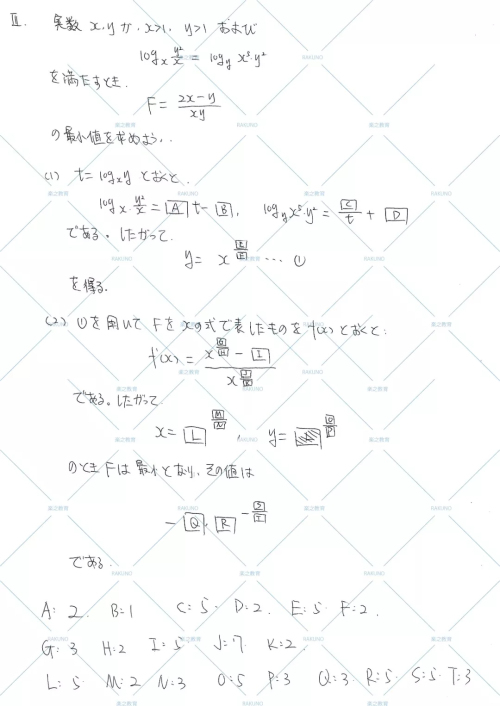 Ⅱ. 実数 x, y が, x>1, y>1 および
log_x y²/x = log_y x⁵·y²
を満たすとき.
F = (2x-y)/(xy)
の最小値を求めよう.
(1) t = log_x y とおくと.
log_x y²/x = [A] t - [B], log_y x⁵·y² = [C]/t + [D]
である。したがって.
y = x^([E]/[F]) … ①
を得る.
(2) ①を用いて F を x の式で表したものを f(x) とおくと.
f(x) = (x^([G]/[H]) - [I]) / x^([J]/[K])
である。したがって.
x = [L]^([M]/[N]), y = ^([O]/[P])
のとき F は 最小となり, その値は
- [Q]·[R]^(-[S]/[T])
である.
A: 2. B=1 C=5. D=2. E=5. F=2.
G: 3 H=2 I=5 J=7. K=2.
L: 5. M=2 N=3 O=5 P=3 Q=3. R=5. S=5. T=3
嘉之教育
RAKUNO